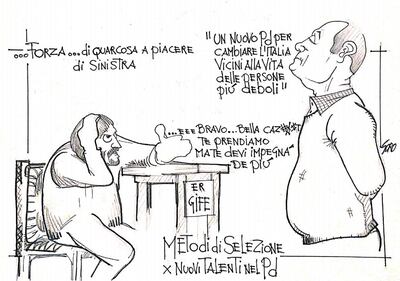 ...FORZA...di QUARCOSA A PIACERE
di SiNiSTRA
"UN NUOVO Pd PER
CAMBIARE L'ITALIA
VICINI ALLA VITA
DELLE PERSONE
PIÙ DEBOLI"
...EEE BRAVO...BELLA
TE PRENDIAMO
MA TE DEVI IMPEGNA'
DE PIÙ
ER
GIFE
METODI di SELEZIONE
x NUOVI TALENTI NEL Pd